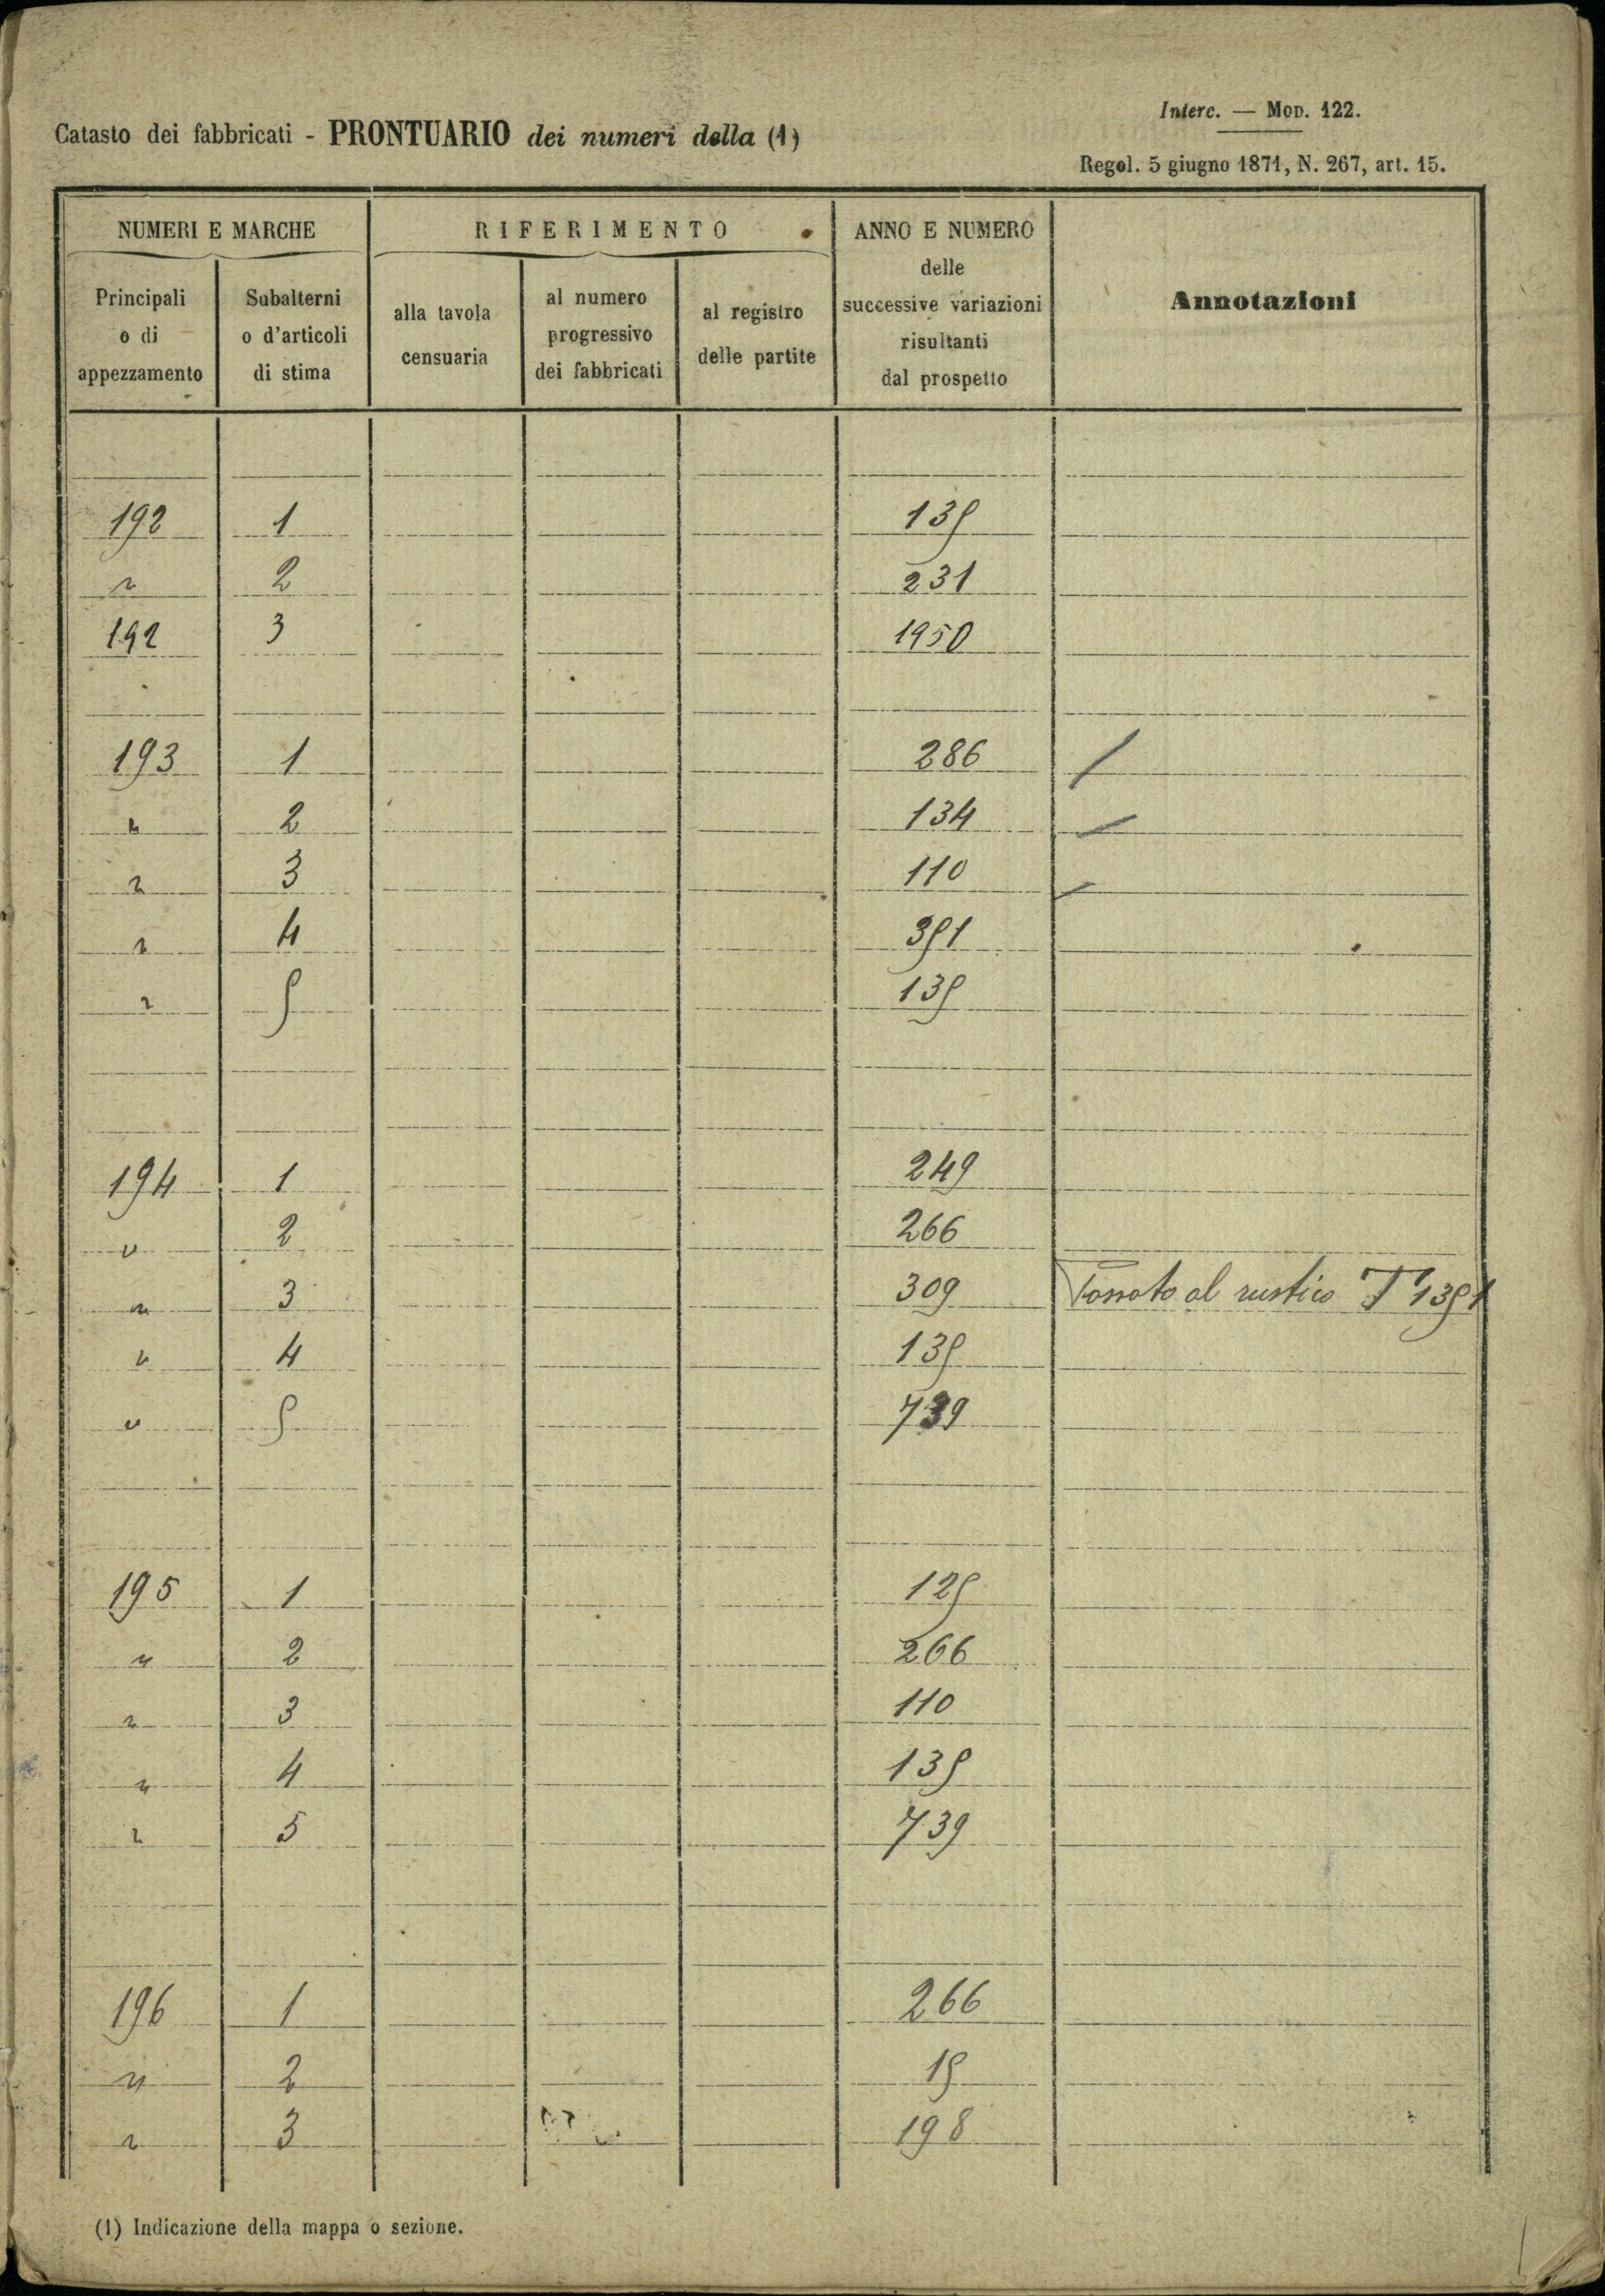 Interc. — MOD. 122.
Catasto dei fabbricati - PRONTUARIO dei numeri della (1)
Regol. 5 giugno 1871, N. 267, art. 15.
NUMERI E MARCHE
RIFERIMENTO
ANNO E NUMERO
delle
successive variazioni
risultanti
dal prospetto
Annotazioni
Principali
o di
appezzamento
Subalterni
o d'articoli
di stima
alla tavola
censuaria
al numero
progressivo
dei fabbricati
al registro
delle partite
192 1 135
" 2 231
192 3 1950
193 1 286 /
" 2 134 /
" 3 110 /
" 4 351
" 5 135
194 1 249
" 2 266
" 3 309 Passato al rustico T 1351
" 4 135
" 5 739
195 1 125
" 2 266
" 3 110
" 4 135
" 5 739
196 1 266
" 2 15
" 3 198
(1) Indicazione della mappa o sezione.